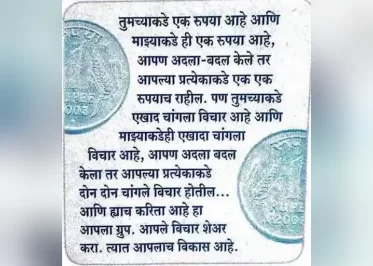 तुमच्याकडे एक रुपया आहे आणि
माझ्याकडे ही एक रुपया आहे,
आपण अदला-बदल केले तर
आपल्या प्रत्येकाकडे एक एक
रुपयाच राहील. पण तुमच्याकडे
एखाद चांगला विचार आहे आणि
माझ्याकडेही एखादा चांगला
विचार आहे, आपण अदला बदल
केला तर आपल्या प्रत्येकाकडे
दोन दोन चांगले विचार होतील...
आणि ह्याच करिता आहे हा
आपला ग्रुप. आपले विचार शेअर
करा. त्यात आपलाच विकास आहे.